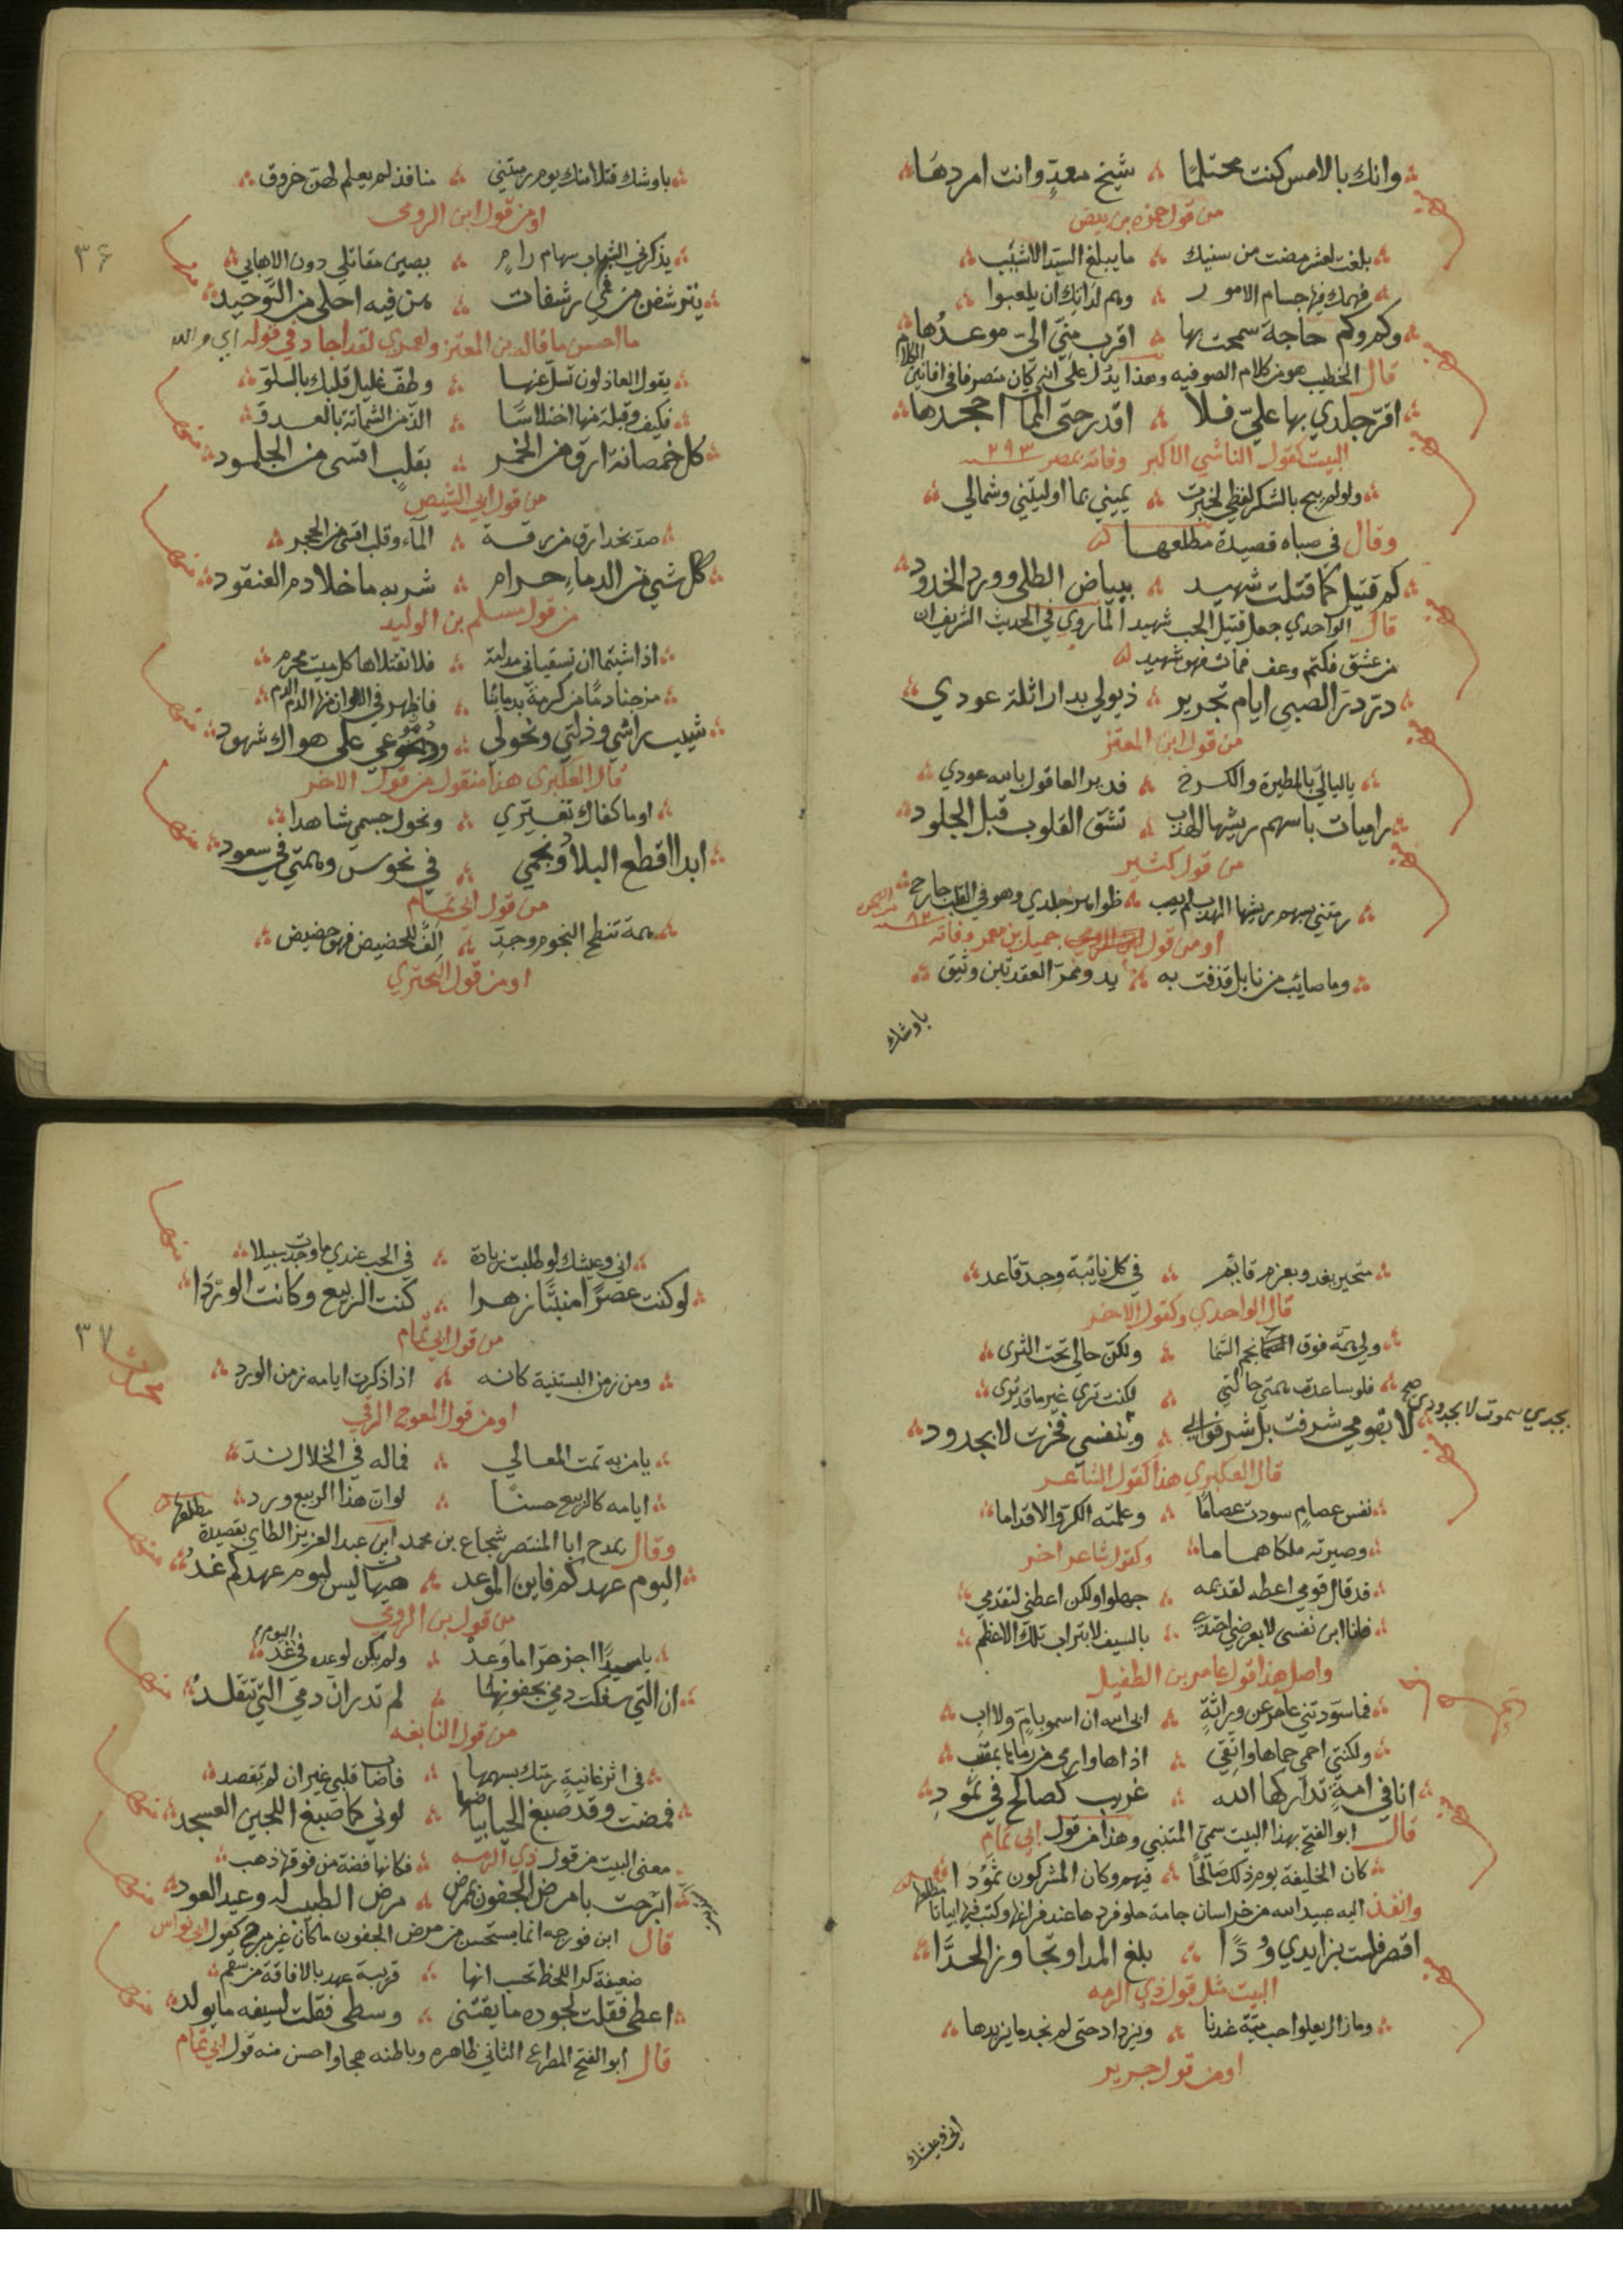 وانك بالامس كنت محتلما شيخ معدّ وانت امردها
من قول حمزه بن بيض
بلغت لعشر مضت من سنيك ما يبلغ السيد الاشيب
فهمك فيها جسام الامور وهم لداتك ان يلعبوا
وكم وكم حاجة سمحت بها اقرب منّي اليّ موعدها
قال الخطيب هو من كلام الصوفيه وهذا يدل على انه كان متصرفا في افانين الكلام
اقرّ جلدي بها عليّ فلا اقدر حتى المما اجحدها
البيت كقول الناشي الاكبر وفاته بمصر ٢٩٣
ولو لم يبح بالشكر لفظي لخبرت يميني بما اوليتني وشمالي
وقال في صباه قصيدة مطلعها
كم قتيل كما قتلت شهيد ببياض الطلى وورد الخدود
قال الواحدي جعل قتيل الحب شهيدا لما روي في الحديث الشريف ان
من عشق فكتم وعف فمات فهو شهيد
درّ درّ الصبي ايام تجرير ذيولي بدار اثلة عودي
من قول ابن المعتز
يا ليالي بالمطيرة والكرخ فدير العاقول بالله عودي
راميات باسهم ريشها الهدب تشق القلوب قبل الجلود
من قول كثير
رمتني بسهم ريشها الهدب لم يصب ظواهر جلدي وهو في القلب جارح
او من قول جميل بن معمر وفاته ٨٢
وما صائب من نابل قذفت به يد وممرّ العقدتين وثيق
باوشك
باوشك قتلا منك يوم رميتني منافذ لم يعلم لهن خروق
او من قول ابن الرومي
٣٦
يذكرني الشباب سهام رام يصبن مقاتلي دون الاهابي
يترشفن من فمي رشفات هن فيه احلى من التوحيد
ما احسن ما قاله بن المعتز ولعمري لقد اجاد في قوله
يقول العاذلون تسلّ عنها وطفّ غليل قلبك بالسلوّ
فكيف وقبلة منها اختلاسا الذّ من الشماتة بالعدوّ
كل خمصانة ارق من الخمر بقلب اقسى من الجلمود
من قول ابي الشيص
صدّ بخد ارق من رقة الماء وقلب اقسى من الحجر
كل شي من الدماء حرام شربه ما خلا دم العنقود
من قول مسلم بن الوليد
اذا شيتما ان تسقياني مدامة فلا تقتلاها كل ميت محرم
مزجنا دما من كرمة بدمائنا فاظهر في الالوان منها الدم الدم
شيب راسي وذلتي ونحولي ودموعي على هواك شهود
قال العكبرى هذا منقول من قول الاخر
اوما كفاك تغيري ونحول جسمي شاهدا
ابدا اقطع البلاد ونجمي في نحوس وهمتي في سعود
من قول ابي تمام
همة تنطح النجوم وجدّ الف للحضيض فهو حضيض
او من قول البحتري
متحير يغدو بعزم قايم في كل نايبة وجدّ قاعد
قال الواحدي وكقول الاخر
ولي همة فوق نجم السما ولكن حالي تحت الثرى
فلو ساعدت همتي حالتي لكنت ترى غير ما قد ترى
لا بقومي شرفت بل شرفوا بي وبنفسي فخرت لا بجدود
بجدي سموت لا بجدودي صح
قال العكبري هذا كقول الشاعر
نفس عصام سودت عصاما وعلمته الكرّ والاقداما
وصيرته ملكا هماما وكقول شاعر اخر
قد قال قومي اعطه لقديمه جهلوا ولكن اعطني لتقدمي
فانا ابن نفسى لا بعرضي احتدي بالسيف لا بتراب تلك الاعظم
واصل هذا قول عامر بن الطفيل
فما سوّدتني عامر عن وراثة ابى الله ان اسمو بام ولا اب
ولكنني احمي حماها واتقي اذاها وارمي من رماها بمقنب
انا في امة تداركها الله غريب كصالح في ثمود
قال ابو الفتح بهذا البيت سميّ المتنبي وهذا من قول ابي تمام
كان الخليفة يوم ذلك صالحا فيهم وكان المشركون ثمودا
وانفذ اليه عبيد الله من خراسان جامة حلو فردها عند فراغها وكتب فيها ابياتا مطلعها
اقصر فلست بزايدي ودّا بلغ المدا وتجاوز الحدّا
البيت مثل قول ذي الرمه
وما زال يعلو احب ميّة عندنا ويزداد حتى لم نجد ما يزيدها
او من قول جرير
اني وعيشك
اني وعيشك لو طلبت زيادة في الحب عندي ما وجدت سبيلا
لو كنت عصرا منبتا زهرا كنت الربيع وكانت الوردا
٣٧
من قول ابي تمام
ومن زمن البستنية كانه اذا ذكرت ايامه زمن الورد
او من قول المعوج الرقي
يا من به تمت المعالي فما له في الخلال ندّ
ايامه كالربيع حسنا لو ان هذا الربيع ورد
وقال يمدح ابا المنتصر شجاع بن محمد ابن عبد العزيز الطاي بقصيدة مطلعها
اليوم عهدكم فاين الموعد هيهات ليس ليوم عهدكم غد
من قول بن الرومي
يا سيدا انجز حرّا ما وعد ولم يكن لوعده في اليوم غد
ان التي سفكت دمي بجفونها لم تدر ان دمي التي تتقلد
من قول النابغه
في اثر غانية رمتك بسهمها فاصاب قلبي غير ان لم تقصد
فمضت وقد صبغ الحيا بياضها لوني كما صبغ اللجين العسجد
معنى البيت من قول ذي الرمه فكانها فضة من فوقها ذهب
ابرحت يا مرض الجفون بممرض مرض الطبيب له وعيد العود
قال ابن فورجه انما يستحسن من مرض الجفون ما كان غير مبرح كقول ابي نواس
ضعيفة كر اللحظ تحسب انها قريبة عهد بالافاقة من سقم
اعطى فقلت لجوده ما يقتنى وسطى فقلت لسيفه ما يولد
قال ابو الفتح المطراع الثاني ظاهره وباطنه هجا واحسن منه قول ابي تمام